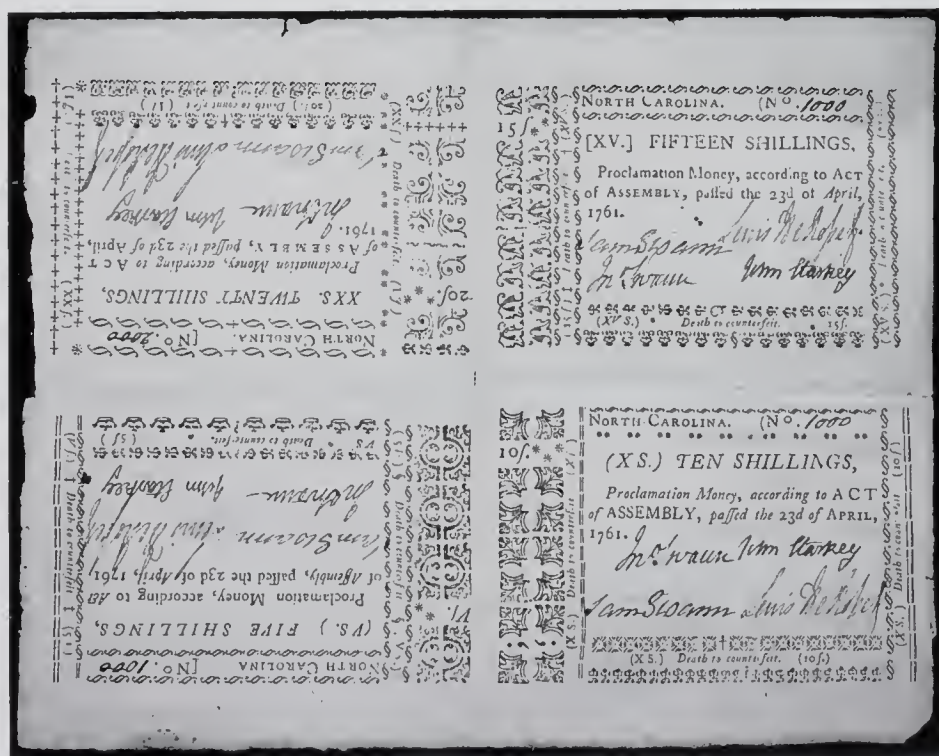 NORTH CAROLINA. [No. 2000
XXS. TWENTY SHILLINGS,
Proclamation Money, according to ACT
of ASSEMBLY, paſſed the 23d of April,
1761.
Jno Swann John Starkey
Sam Swann Lewis DeRosset
(20ſ.) Death to counterfeit. (1/)
(XXſ.) Death to counterfeit. (1/)
20ſ.
NORTH CAROLINA. (No. 1000
15ſ.
[XV.] FIFTEEN SHILLINGS,
Proclamation Money, according to ACT
of ASSEMBLY, paſſed the 23d of April,
1761.
Sam Swann Lewis DeRosset
Jno Swann John Starkey
(XV S.) Death to counterfeit. 15ſ.
NORTH CAROLINA [No. 1000
(VS.) FIVE SHILLINGS,
Proclamation Money, according to
of Aſſembly, paſſed the 23d of April, 1761
Sam Swann Lewis DeRosset
Jno Swann John Starkey
VS Death to counterfeit. (5ſ)
NORTH-CAROLINA. (No. 1000
10ſ.
(X S.) TEN SHILLINGS,
Proclamation Money, according to ACT
of ASSEMBLY, paſſed the 23d of APRIL,
1761.
Jno Swann John Starkey
Sam Swann Lewis DeRosset
(X S.) Death to counterfeit. (10ſ.)